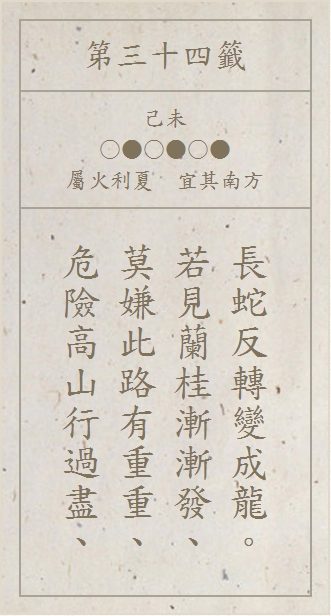 第三十四籤
己未
○●○●○●
屬火利夏　宜其南方
危險高山行過盡、
莫嫌此路有重重、
若見蘭桂漸漸發、
長蛇反轉變成龍。